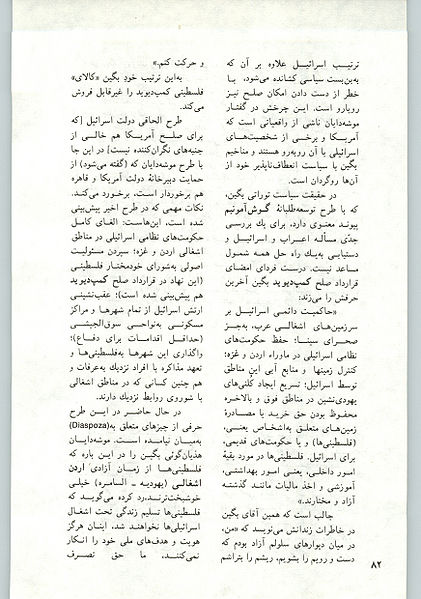 ترتیب اسرائیل علاوه بر آن که
به‌بن‌بست سیاسی کشانده می‌شود، با
خطر از دست دادن امکان صلح نیز
رویارو است. این چرخش در گفتار
موشه‌دایان ناشی از واقعیاتی است که
آمریکا و برخی از شخصیت‌های
اسرائیلی با آن روبه‌رو هستند و مناخیم
بگین با سیاست انعطاف‌ناپذیر خود از
آن‌ها روگردان است.
در حقیقت سیاست توراتی بگین،
که با طرح توسعه‌طلبانهٔ گوش‌آمونیم
پیوند معنوی دارد، برای یك بررسی
جدّی مسأله اعراب و اسرائیل و
دستیابی به‌یك راه حل همه شمول
مساعد نیست. درست فردای امضای
قرارداد صلح کمپ‌دیوید بگین آخرین
حرفش را می‌زند:
«حاکمیت دائمی اسرائیل بر
سرزمین‌های اشغالی عرب، به‌جز
صحرای سینا؛ حفظ حکومت‌های
نظامی اسرائیلی در ماوراء اردن و غزه؛
کنترل زمینها و منابع آبی این مناطق
توسط اسرائیل؛ تسریع ایجاد کلنی‌های
یهودی‌نشین در مناطق فوق و بالاخره
محفوظ بودن حق خرید یا مصادرهٔ
زمین‌های متعلق به‌اشخاص یعنی،
(فلسطینی‌ها) و یا حکومت‌های قدیمی،
برای اسرائیل. فلسطینی‌ها در مورد بقیهٔ
امور داخلی، یعنی امور بهداشتی،
آموزشی و اخذ مالیات مانند گذشته
آزاد و مختارند.»
جالب است که همین آقای بگین
در خاطرات زندانش می‌نویسد که «من،
در میان دیوارهای سلولم آزاد بودم که
دست و رویم را بشویم، ریشم را بتراشم
و حرکت کنم.»
به‌این ترتیب خودِ بگین «کالای»
فلسطینی کمپ‌دیوید را غیرقابل فروش
می‌کند.
طرح الحاقی دولت اسرائیل [که
برای صلح آمریکا هم خالی از
جنبه‌های نگران‌کننده نیست] در این جا
با طرح موشه‌دایان که (گفته می‌شود) از
حمایت دبیرخانهٔ دولت آمریکا و قاهره
هم برخوردار است، برخورد می‌کند.
نکات مهمی که در طرح اخیر پیش‌بینی
شده است، این‌هاست: الغای کامل
حکومت‌های نظامی اسرائیلی در مناطق
اشغالی اردن و غزه؛ سپردن مسئولیت
اصولی به‌شورای خودمختار فلسطینی
(این نهاد در قرارداد صلح کمپ‌دیوید
هم پیش‌بینی شده است)؛ عقب‌نشینی
ارتش اسرائیل از تمام شهرها و مراکز
مسکونی به‌نواحی سوق‌الجیشی
(حداقل اقدامات برای دفاع)؛
واگذاری این شهرها به‌فلسطینی‌ها و
تعهد مذاکره با افراد نزدیك به‌عرفات و
هم چنین کسانی که در مناطق اشغالی
با شوروی روابط نزدیك دارند.
در حال حاضر در این طرح
حرفی از چیزهای متعلق به(Diaspoza)
به‌میان نیامده است. موشه‌دایان
هذیان‌گوئی بگین را در این باره که
فلسطینی‌ها از زمان آزادی! اردن
اشغالی (یهودیه ـ السامره) خیلی
خوشبخت‌ترند، رد کرده می‌گوید که
فلسطینی‌ها تسلیم زندگی تحت اشغال
اسرائیلی‌ها نخواهند شد، اینان هرگز
هویت و هدف‌های ملی خود را انکار
نمی‌کنند، ما حق تصرف
۸۲